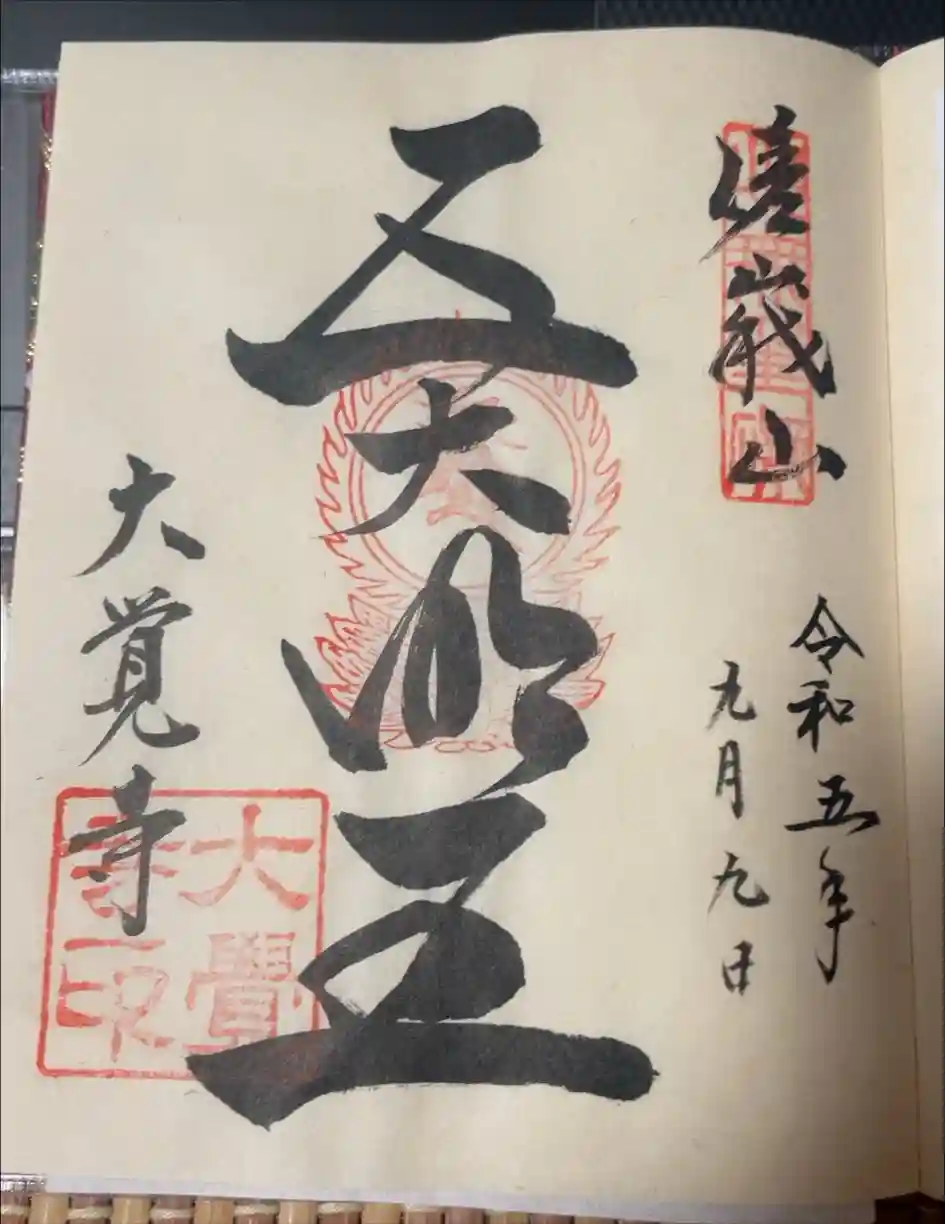 嵯峨山
令和五年
九月九日
五大明王
大覚寺
大覺寺印